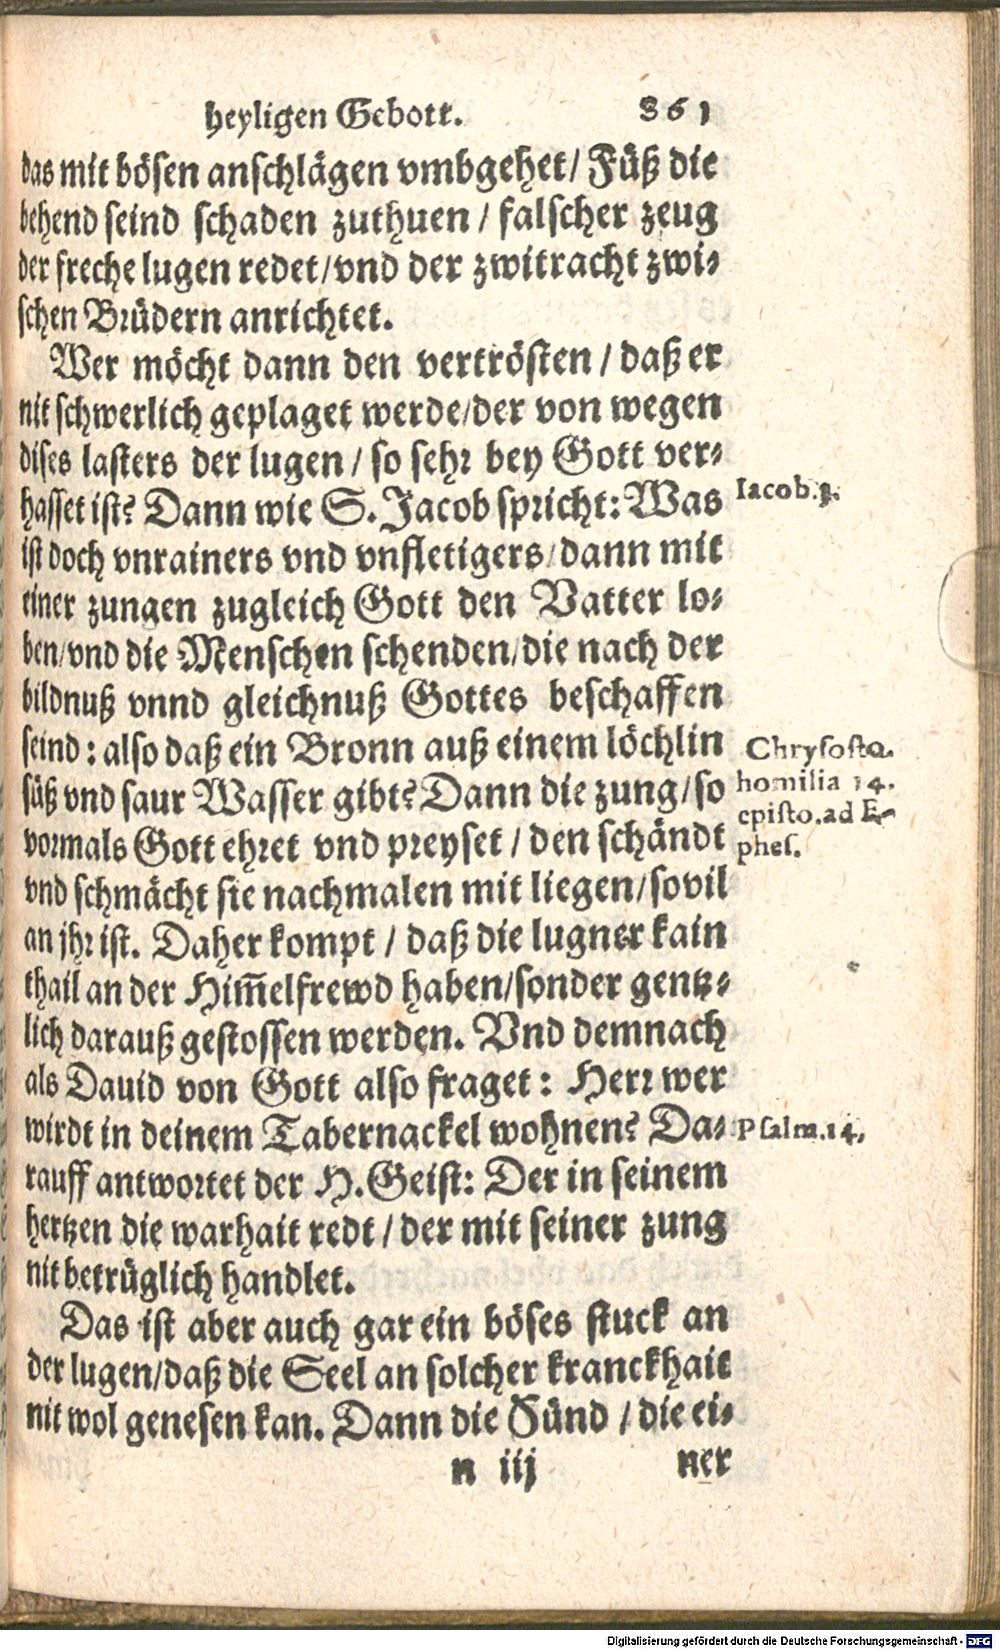 heyligen Gebott. 361
das mit bösen anschlägen vmbgehet/ Füß die
behend seind schaden zuthuen / falscher zeug
der freche lugen redet/vnd der zwitracht zwi-
schen Brüdern anrichtet.
Wer möcht dann den vertrösten / daß er
nit schwerlich geplaget werde/der von wegen
dises lasters der lugen / so sehr bey Gott ver-
hasset ist? Dann wie S. Jacob spricht: Was
Iacob.3.
ist doch vnrainers vnd vnfletigers/dann mit
einer zungen zugleich Gott den Vatter lo-
ben/vnd die Menschen schenden/die nach der
bildnuß vnnd gleichnuß Gottes beschaffen
seind: also daß ein Bronn auß einem löchlin
süß vnd saur Wasser gibt? Dann die zung/so
vormals Gott ehret vnd preyset / den schändt
Chrysosto.
homilia 14.
episto.ad E-
phes.
vnd schmächt sie nachmalen mit liegen/sovil
an jhr ist. Daher kompt / daß die lugner kain
thail an der Him̃elfrewd haben/sonder gentz-
lich darauß gestossen werden. Vnd demnach
als Dauid von Gott also fraget: Herr wer
wirdt in deinem Tabernackel wohnen? Da-
Psalm.14.
rauff antwortet der H. Geist: Der in seinem
hertzen die warhait redt / der mit seiner zung
nit betrüglich handlet.
Das ist aber auch gar ein böses stuck an
der lugen/daß die Seel an solcher kranckhait
nit wol genesen kan. Dann die Sünd / die ei-
n iij ner
Digitalisierung gefördert durch die Deutsche Forschungsgemeinschaft - DFG